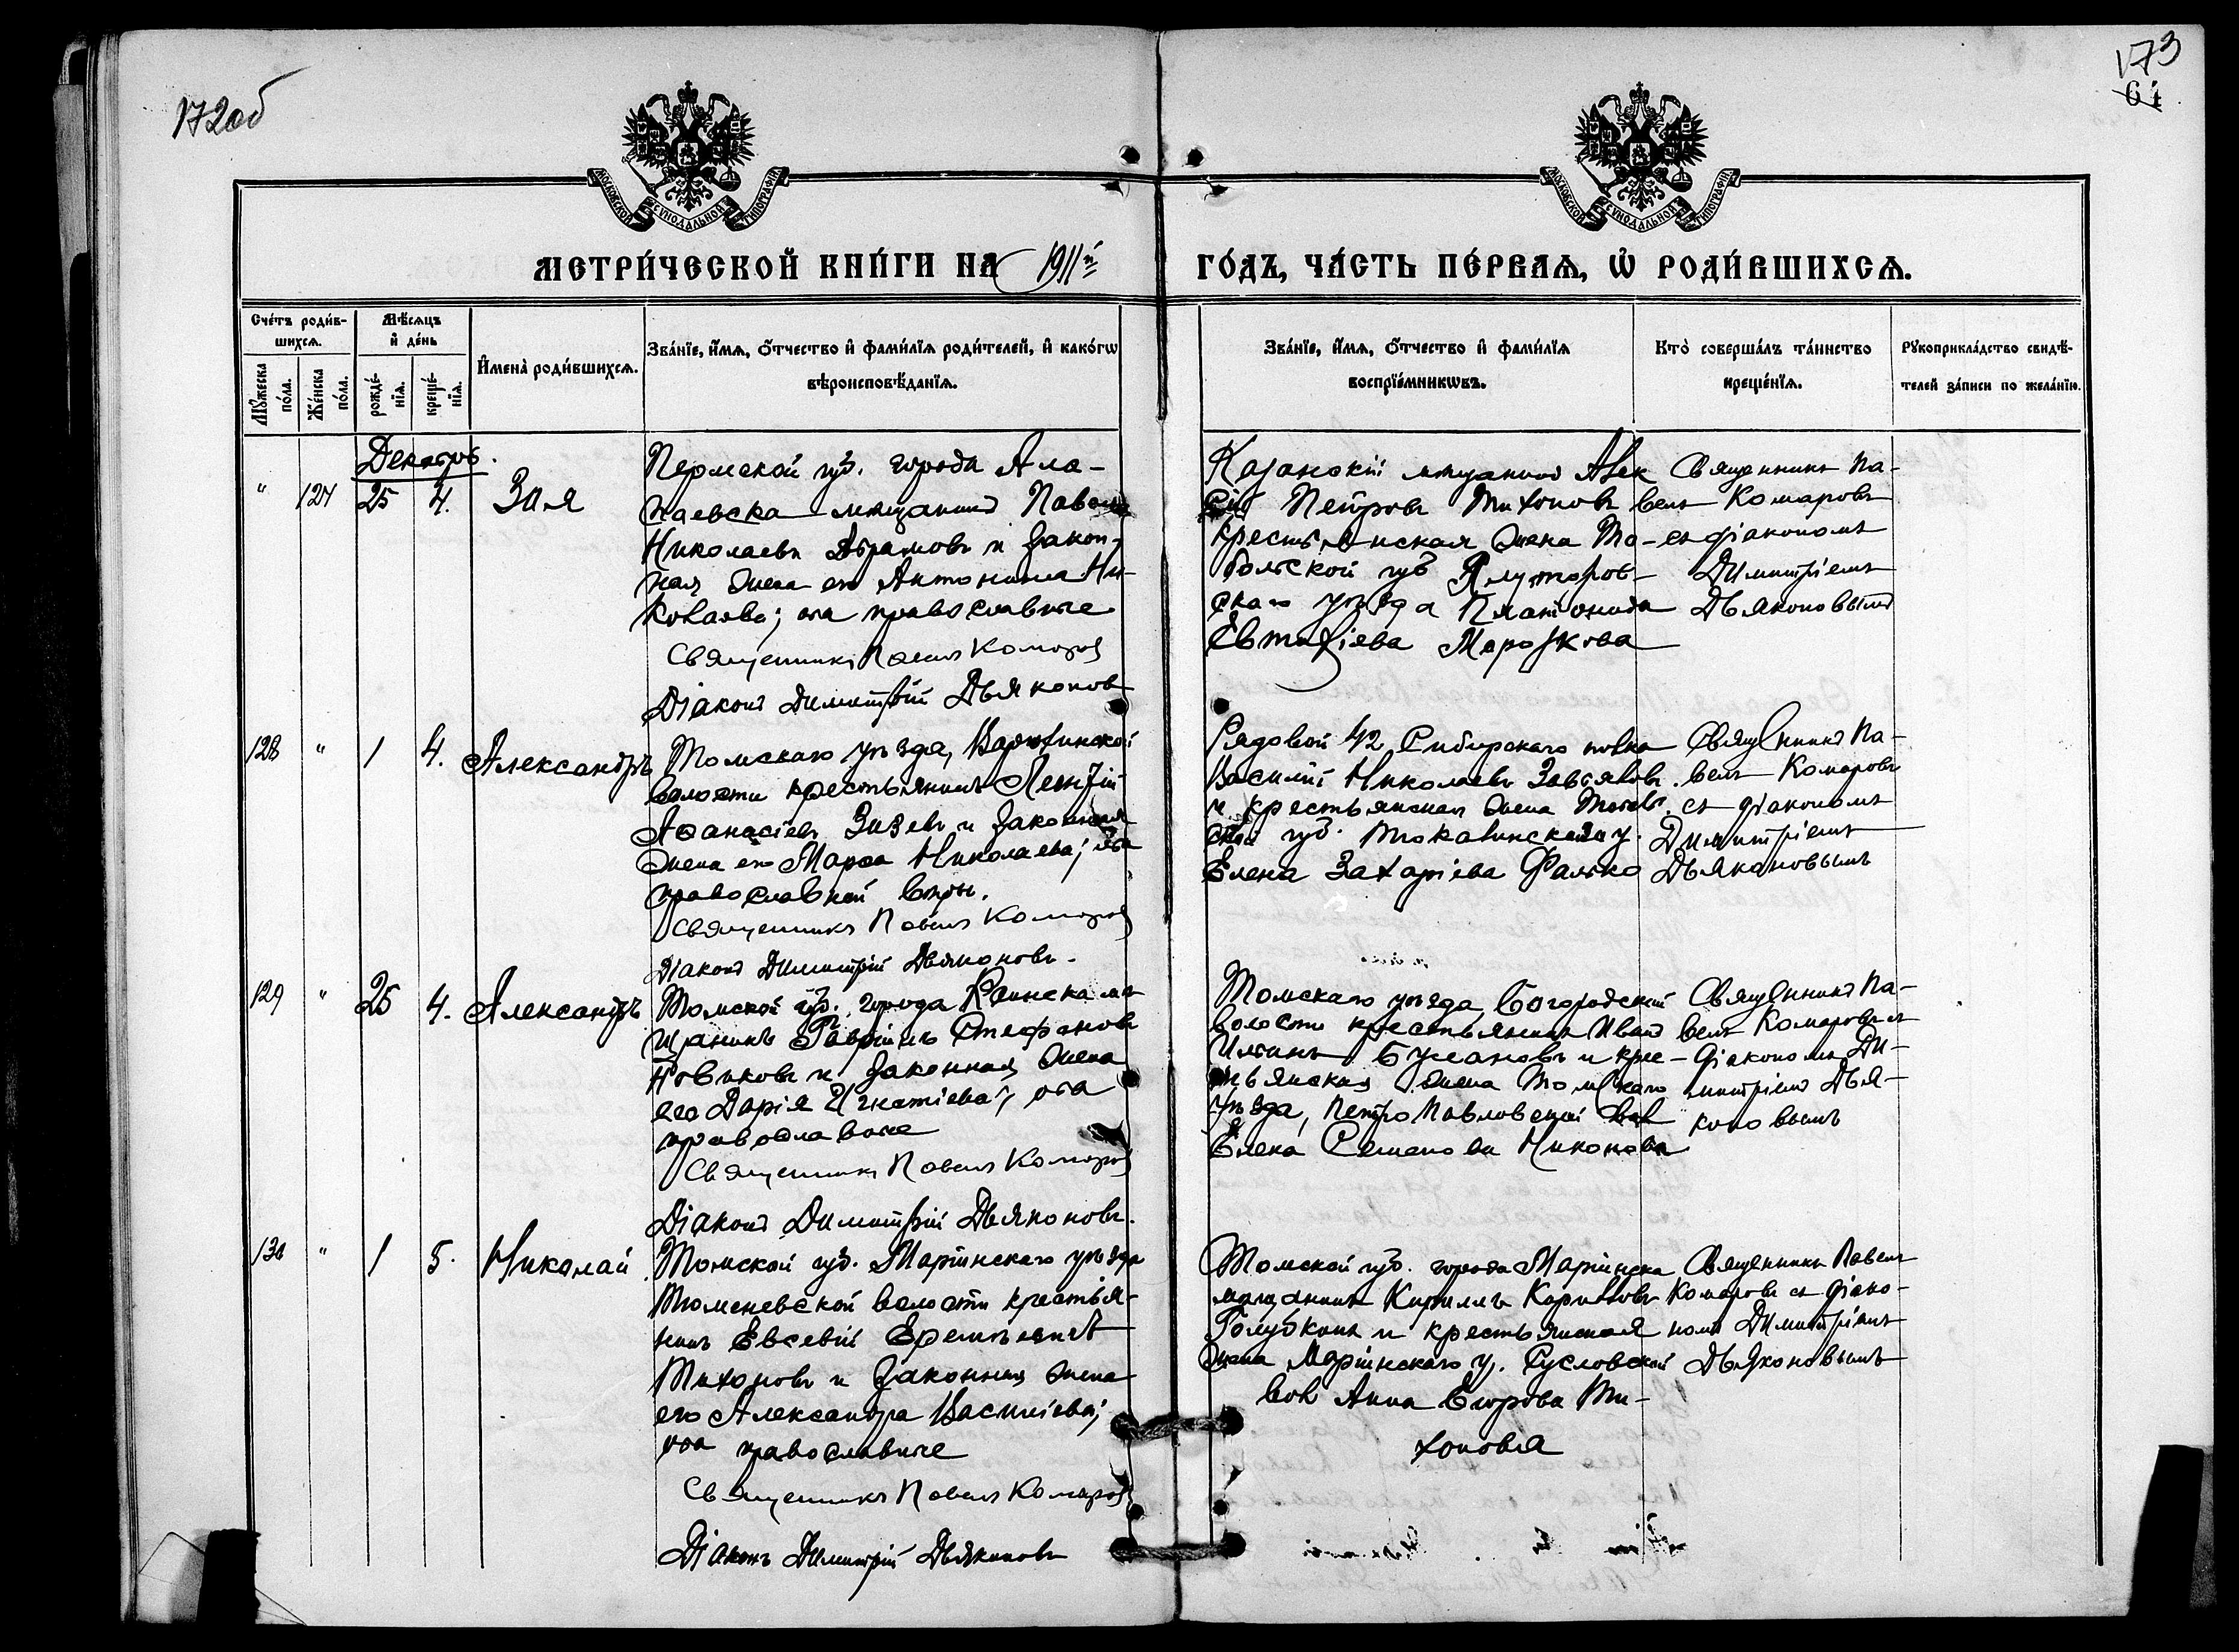 172об
173
64
МОСКОВСКОЙ СѴНОДАЛЬНОЙ ТИПОГРАФІИ
МОСКОВСКОЙ СѴНОДАЛЬНОЙ ТИПОГРАФІИ
МЕТРИ́ЧЕСКОЙ КНИ́ГИ НА 1911й
ГО́ДЪ, ЧА́СТЬ ПЕ́РВАѦ, Ѡ҆ РОДИ́ВШИХСѦ.
Сче́тъ роди́в-
шихсѧ.
Мꙋ́жеска по́ла.
Же́нска по́ла.
Мѣ́сѧцъ
и҆ де́нь
рожде́-нїѧ.
креще́-нїѧ.
И҆мена̀ роди́вшихсѧ.
Зва́нїе, и҆́мѧ, ѻ҆́тчество и҆ фами́лїѧ роди́телей, и҆ како́гѡ
вѣроисповѣ́данїѧ.
Зва́нїе, и҆́мѧ, ѻ҆́тчество и҆ фами́лїѧ
воспрїе́мникѡвъ.
Кто̀ соверша́лъ та́инство
креще́нїѧ.
Рꙋкоприкла́дство свидѣ́-
телей за́писи по жела́нїю.
Декабрь.
" 127 25 4. Зоя
Пермской губ. города Ала-
паевска мещанинъ Павелъ
Николаевъ Абрамовъ и закон-
ная жена его Антонина Ни-
колаева; оба православные
Священникъ Павелъ Комаровъ
Діаконъ Димитрій Дьяконовъ
Казанскій мещанинъ Алек
сій Петровъ Тихоновъ
крестьянская жена То-
больской губ Ялуторов-
скаго уѣзда Платонида
Евтихіева Морозкова
Священникъ Па-
велъ Комаровъ
съ діакономъ
Димитріемъ
Дьяконовымъ
128 " 1 4. Александръ
Томскаго уѣзда, Варюхинской
волости крестьянинъ Леонтій
Аѳанасіевъ Зизевъ и законная
жена его Марѳа Николаева; оба
православной вѣры.
Священникъ Павелъ Комаровъ
Діаконъ Димитрій Дьяконовъ.
Рядовой 42 Сибирскаго полка
Василій Николаевъ Завьяловъ
и крестьянская жена Тоболь
ской губ. Тюкалинскаго у.
Елена Захаріева Фалько
Священникъ Па-
велъ Комаровъ
съ діакономъ
Димитріемъ
Дьяконовымъ
129 " 25 4. Александръ
Томской губ. города Каинска мѣ
щанинъ Гавріилъ Стефановъ
Новиковъ и законная жена
его Дарія Игнатіева; оба
православные
Священникъ Павелъ Комаровъ
Діаконъ Димитрій Дьяконовъ.
Томскаго уѣзда, Богородской
волости крестьянинъ Иванъ
Ильинъ и кре-
стьянская жена Томскаго
уѣзда, Петропавловской вол
Елена Семенова Никонова
Священникъ Па-
велъ Комаровъ съ
діакономъ Ди-
митріемъ Дья-
коновымъ
130 " 1 5. Николай
Томской губ. Маріинскаго уѣзда
Тюменевской волости крестья-
нинъ Евсевій Еремѣевичъ
Тихоновъ и законная жена
его Александра Василіева;
оба православные
Священникъ Павелъ Комаровъ
Діаконъ Димитрій Дьяконовъ
Томской губ. города Маріинска
мещанинъ Кириллъ Кирилловъ
Голубкинъ и крестьянская
жена Маріинскаго у. Сусловской
вол Анна Егорова Ти-
хонова
Священникъ Павелъ
Комаровъ съ діако-
номъ Димитріемъ
Дьяконовымъ